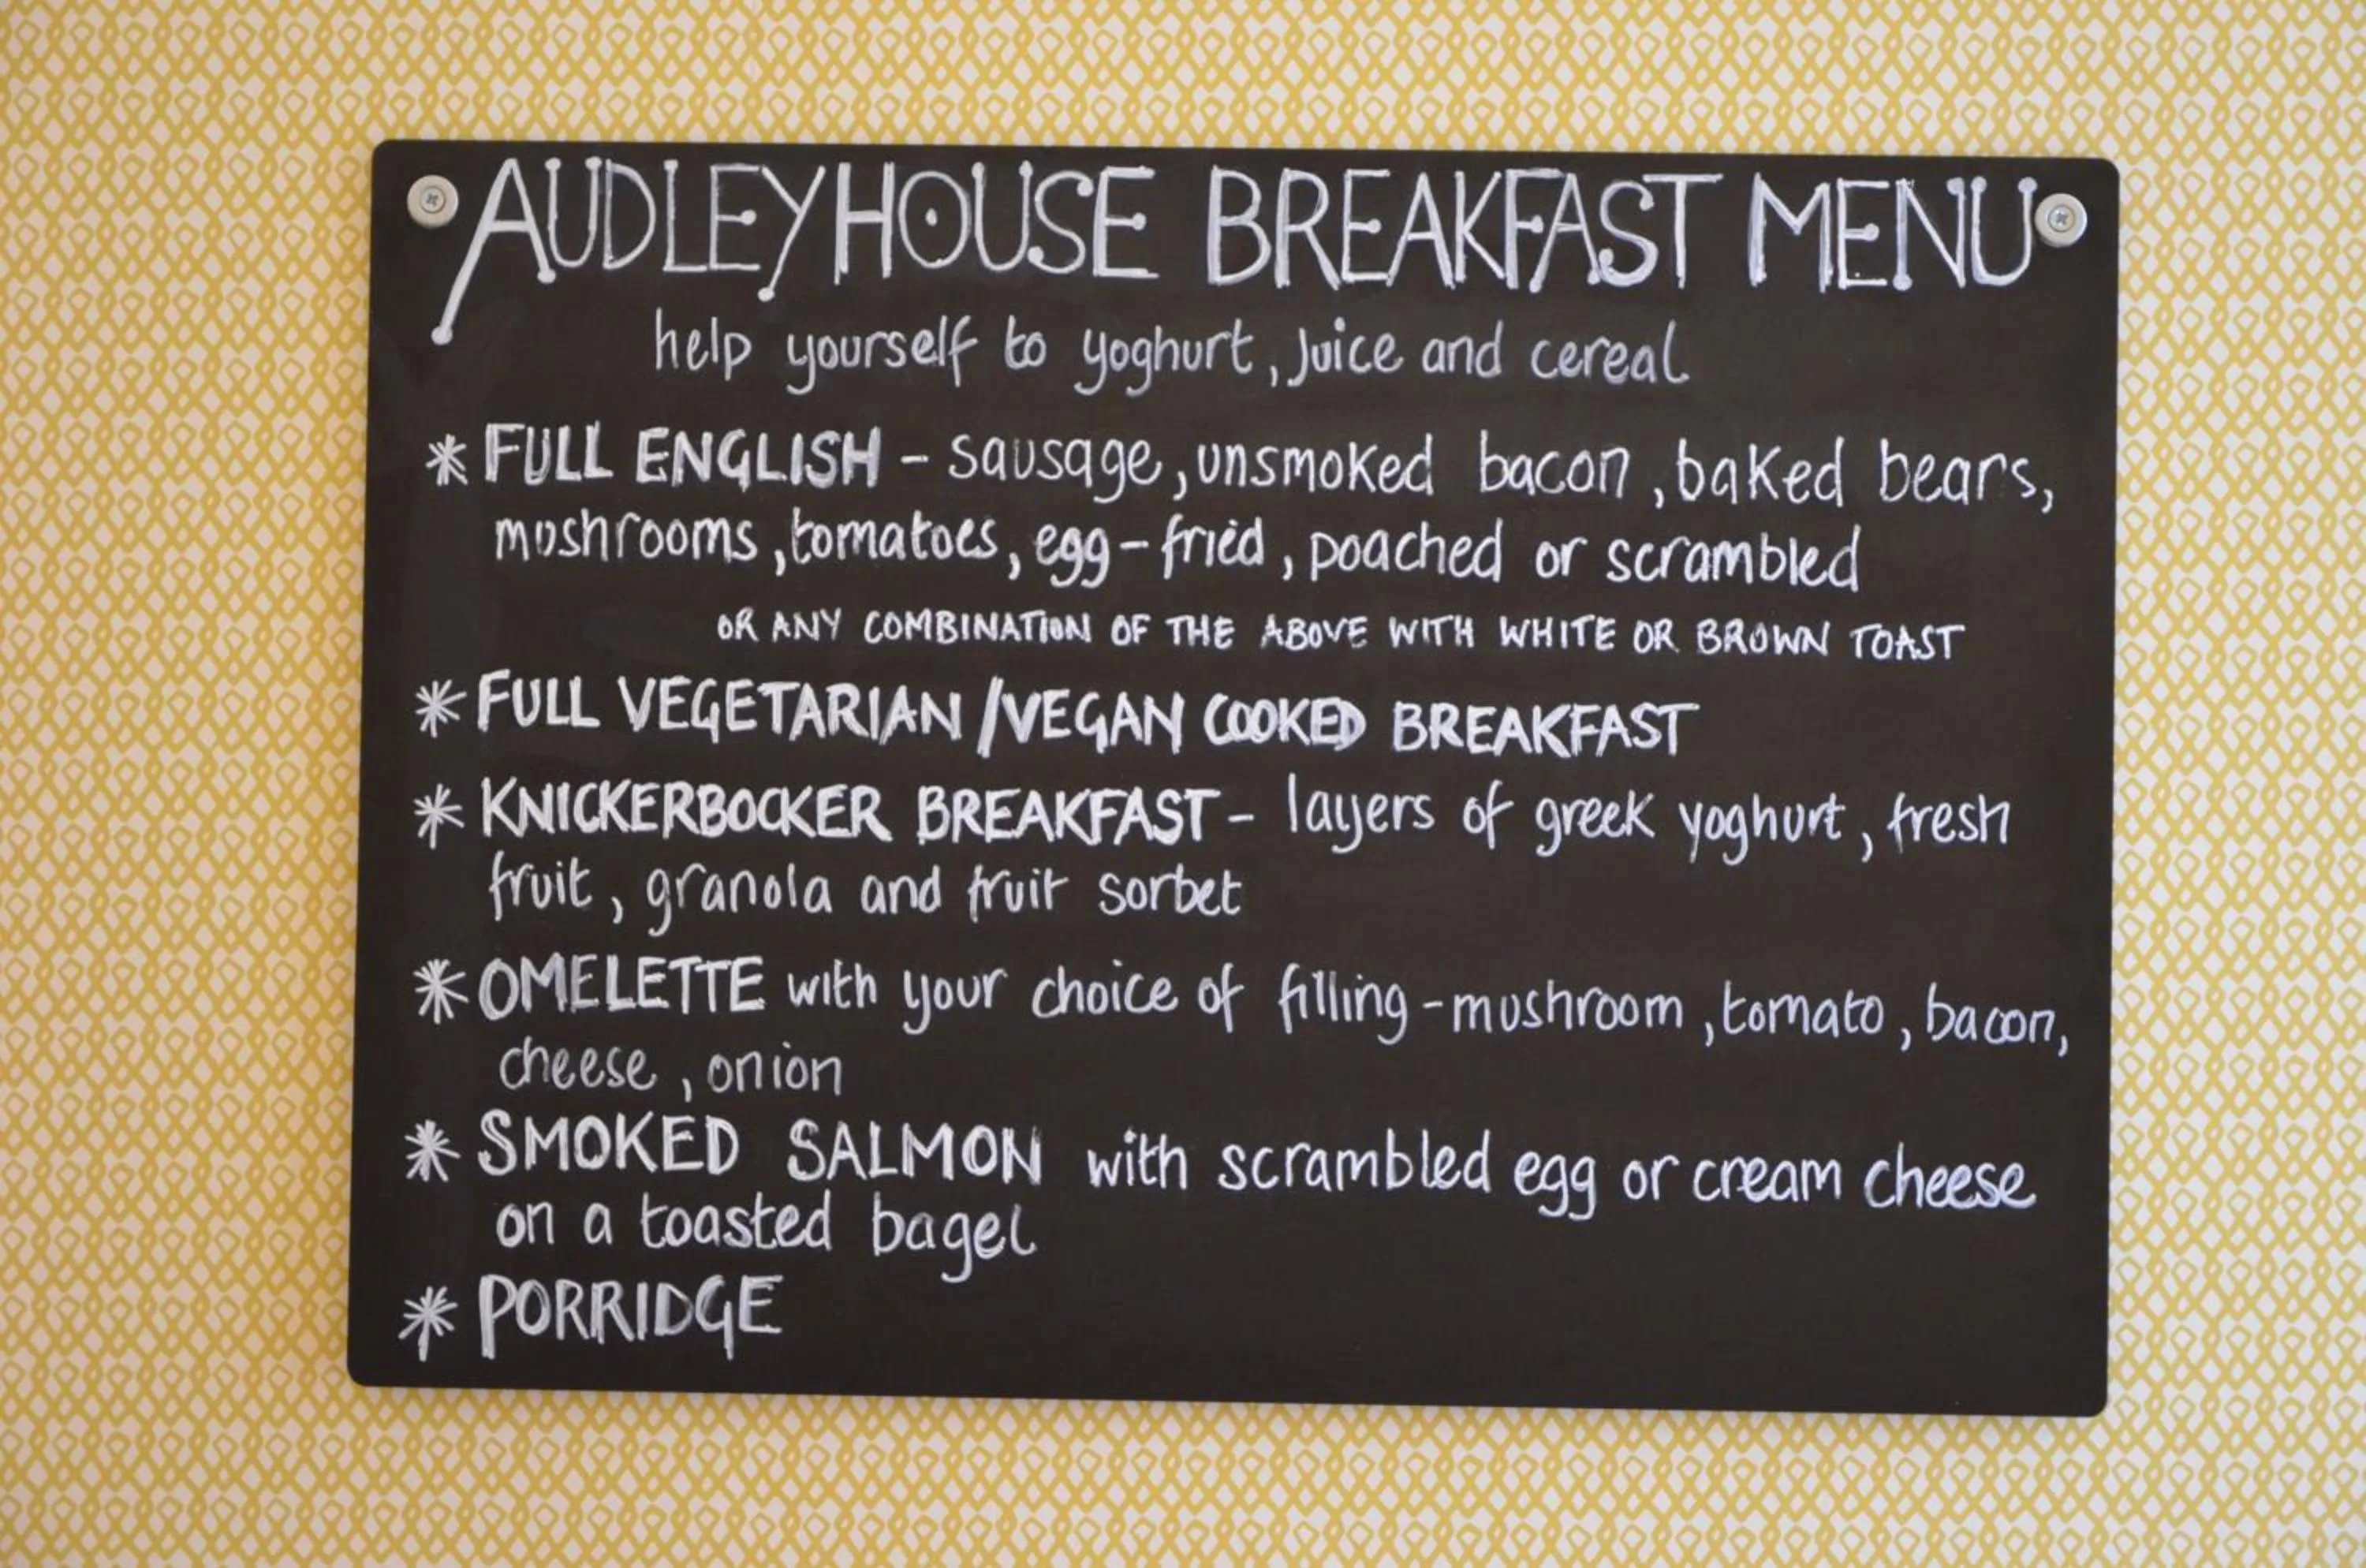 AUDLEY HOUSE BREAKFAST MENU
help yourself to yoghurt, juice and cereal
* FULL ENGLISH - sausage, unsmoked bacon, baked bears,
mushrooms, tomatoes, egg - fried, poached or scrambled
OR ANY COMBINATION OF THE ABOVE WITH WHITE OR BROWN TOAST
* FULL VEGETARIAN / VEGAN COOKED BREAKFAST
* KNICKERBOCKER BREAKFAST - layers of greek yoghurt, fresh
fruit, granola and fruit sorbet
* OMELETTE with your choice of filling - mushroom, tomato, bacon,
cheese, onion
* SMOKED SALMON with scrambled egg or cream cheese
on a toasted bagel
* PORRIDGE